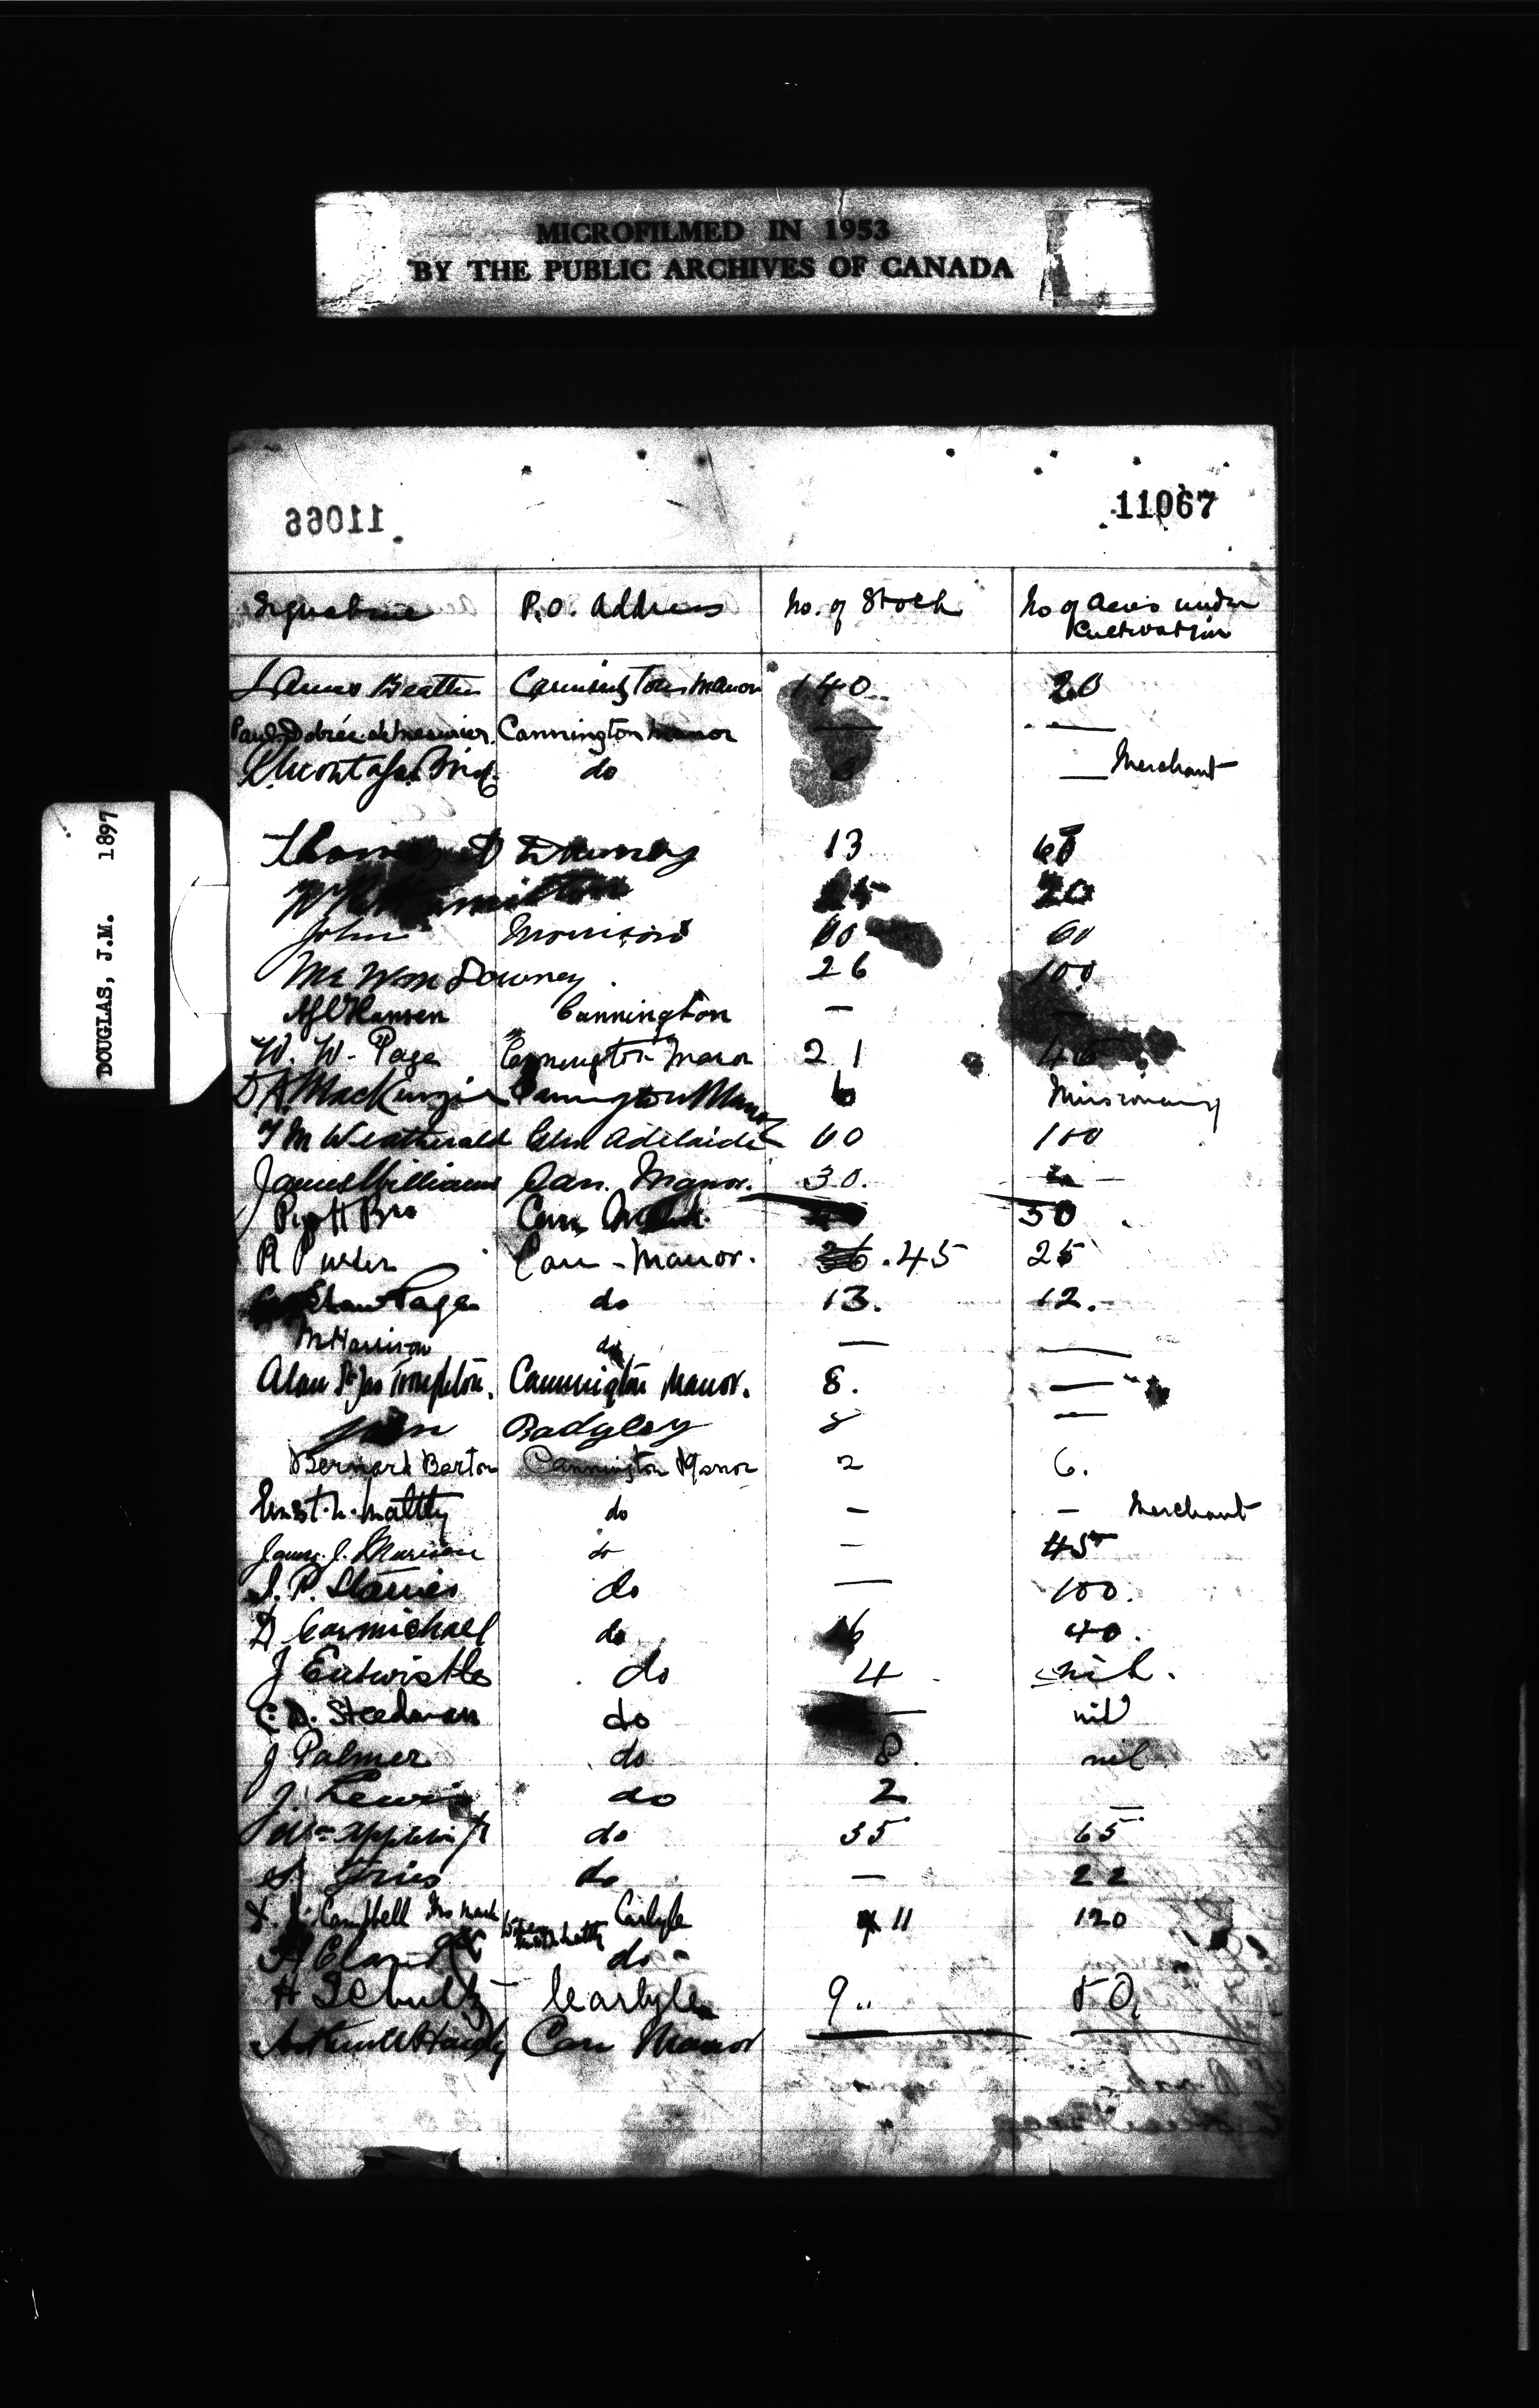 MICROFILMED IN 1953
BY THE PUBLIC ARCHIVES OF CANADA
DOUGLAS, J.M. 1897
11066 11067
Signature P.O. Address No. of Stock No of Acres under
Cultivation
James Beattie Cannington Manor 140 20
Cannington Manor — —
do — Merchant
Thomas Downey 13 60
Hamilton 25 20
John Morrison 60 60
Mr Wm Downey 26 100
Hansen Cannington — —
W. W. Page Cannington Manor 21
D A MacKenzie Cannington Manor 6 Missionary
T M Weatherald Glen Adelaide 60 100
James Williams Can. Manor. 30. —
Pigott Bro Can 50
R P Can - Manor. 36 . 45 25
Shaw Page do 13. 12.
M Harrison do — —
Alan St Jas Troughton. Cannington Manor. 8. —
John Badgley 8 —
Bernard Barton Cannington Manor 2 6.
Ernst. N. Maltby do — — Merchant
James. J. do — 45
S. P. do — 100.
D Carmichael do 16 40.
J Entwistle do 4 nil.
C. D. Steedman do — nil
J Palmer do 8. nil
J. Lewis do 2 —
Wm Appleton Jr do 35 65
do — 22
Campbell his mark Carlyle 11 120
do
H Schultz Carlyle 9.. 50
Hardy Can Manor